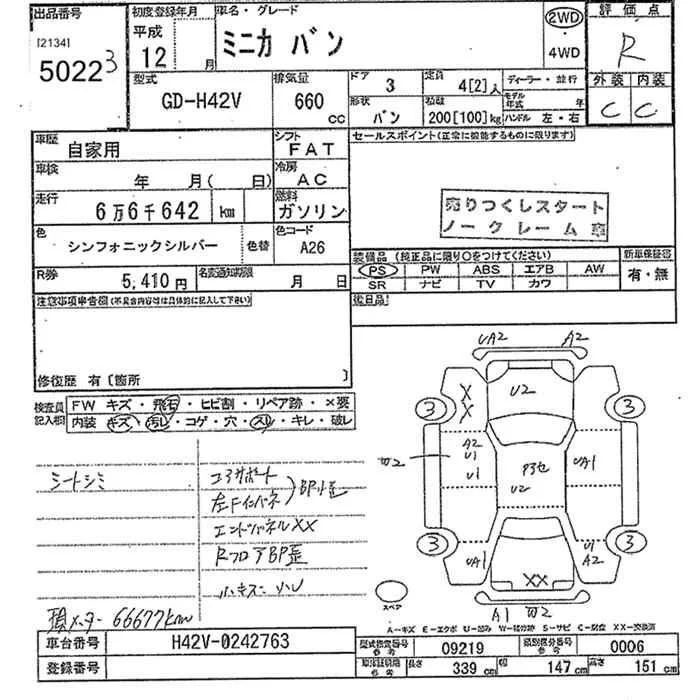 出品番号
[2134]
50223
初度登録年月
平成
12 月
車名・グレード
ミニカ バン
2WD
・
4WD
評価点
R
外装 内装
C C
型式
GD-H42V
排気量
660
cc
ドア
3
定員
4[2]人
ディーラー・並行
モデル年式 年
形状
バン
積載
200[100]kg
ハンドル 左・右
車歴
自家用
シフト
FAT
車検
年 月( 日)
冷房
AC
走行
6万6千642 km
燃料
ガソリン
色
シンフォニックシルバー
色替
色コード
A26
R券
5,410円
名変通知期限
月 日
セールスポイント(正常に機能するものに限ります)
売りつくしスタート
ノークレーム
装備品 (純正品に限り○をつけてください)
PS PW ABS エアB AW
SR ナビ TV カワ
新車保証書
有・無
後日品
注意事項申告欄(不具合内容等は具体的に記入して下さい)
修復歴 有〔箇所 〕
検査員
記入欄
FW キズ・飛石・ヒビ割・リペア跡・×要
内装 キズ・汚レ・コゲ・穴・スレ・キレ・破レ
シートシミ
エンドパネルXX
RフロアBP歪
66677km
UA2 A2
U2
X
X
3 3
A2
U1
U1
U2
UA1
3 3
UA1
U1
A2
XX
A1
スペア
A-キズ E-エクボ U-凹み W-補修跡 S-サビ C-腐食 XX-交換済
車台番号
H42V-0242763
登録番号
型式指定番号
参考
09219
類別区分番号
参考
0006
長さ
339 cm
幅
147 cm
高さ
151 cm